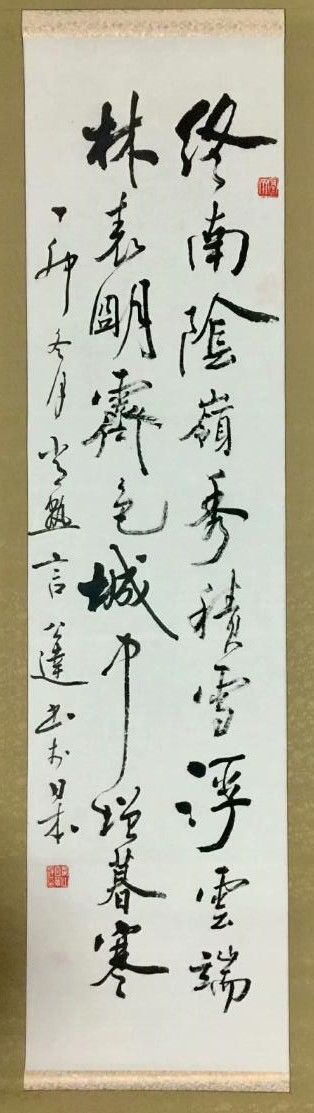 終南陰嶺秀積雪浮雲端
林表明霽色城中增暮寒
丁卯冬月常熟言公達书於日本